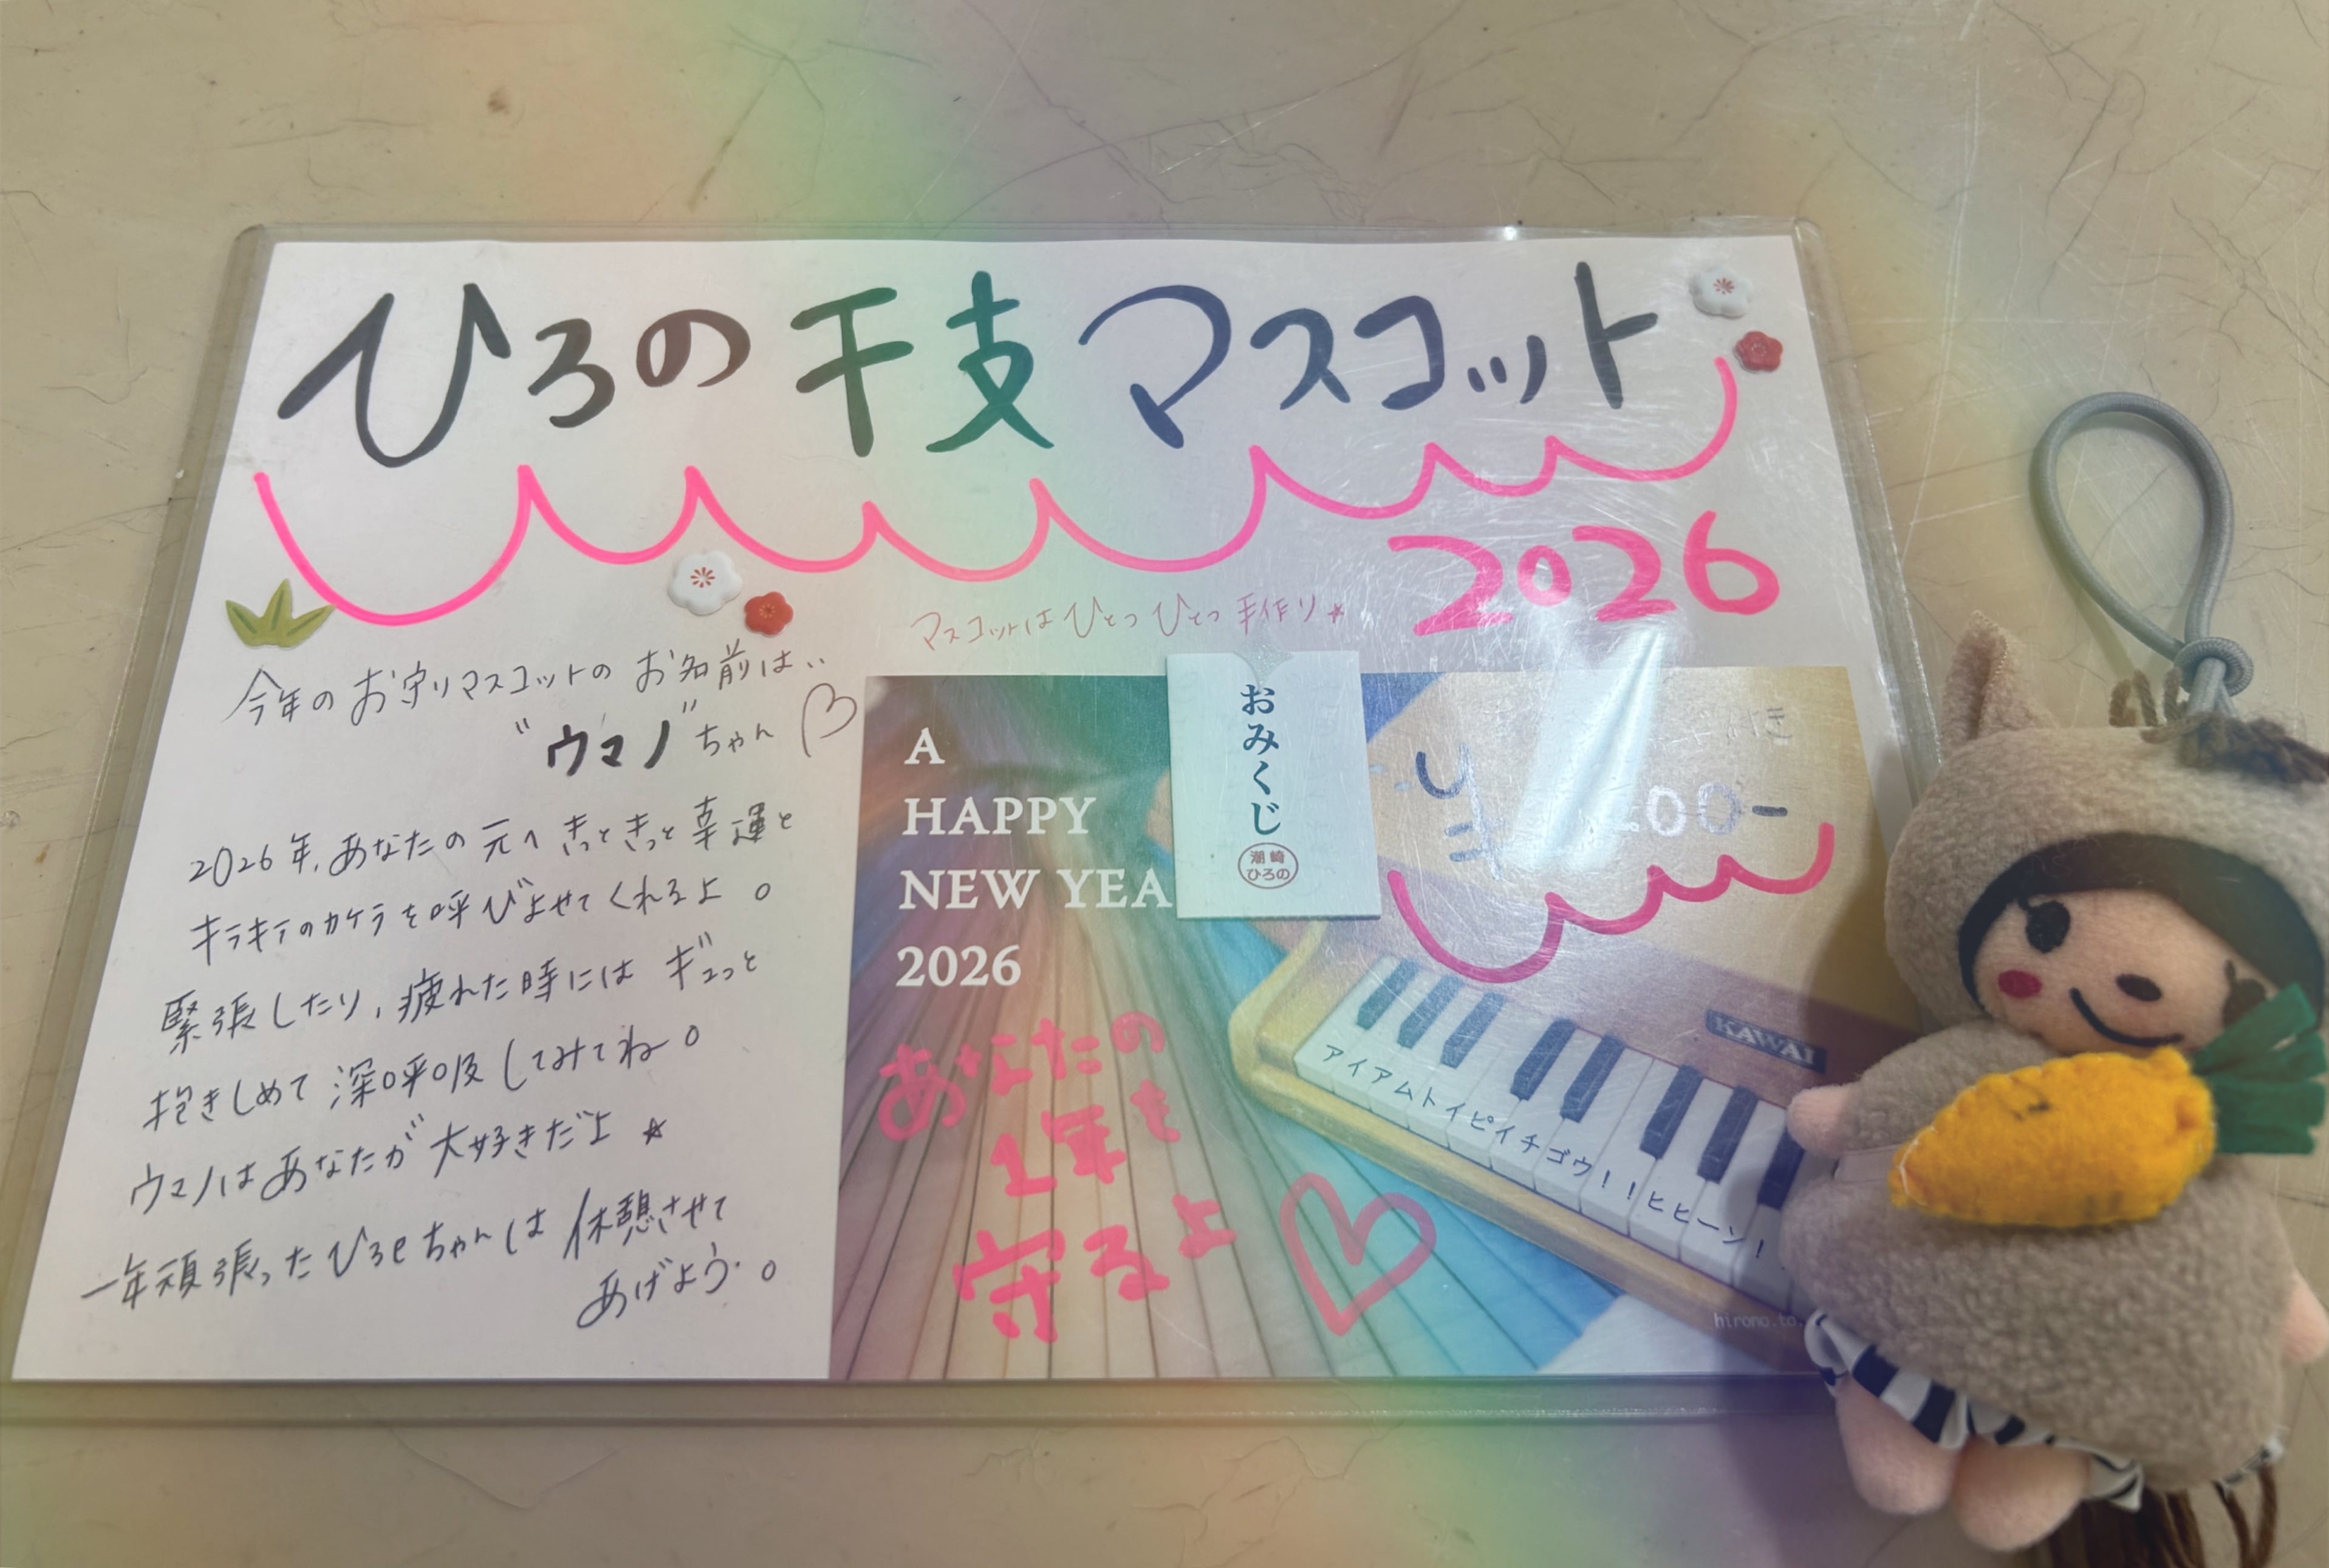 ひろの干支マスコット
2026
マスコットはひとつひとつ手作り☆
今年のお守りマスコットのお名前は..
"ウマノ"ちゃん♡
2026年、あなたの元へきっときっと幸運と
キラキラのカケラを呼びよせてくれるよ。
緊張したり、疲れた時にはギュっと
抱きしめて深呼吸してみてね。
ウマノはあなたが大好きだよ☆
一年頑張ったひろeちゃんは休憩させて
あげよう。
A
HAPPY
NEW YEA
2026
おみくじ
潮崎
ひろの
00-
あなたの
1年を
守るよ♡
KAWAI
アイアムトイピイチゴウ!!ヒヒーン!
hirono.to